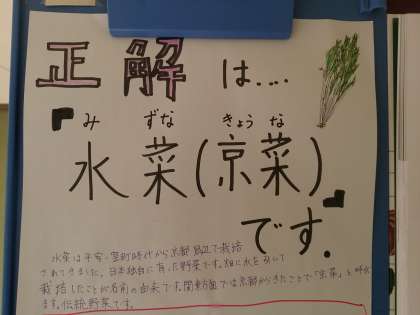 正解は....
『水菜(京菜)』
みずな きょうな
です.
水菜は平安・室町時代から京都周辺で栽培
されてきました。日本独自に有った野菜です。畑に水を引いて
栽培したことが名前の由来です。関東方面では京都からきたことで「京菜」と呼び
ます。伝統野菜です。